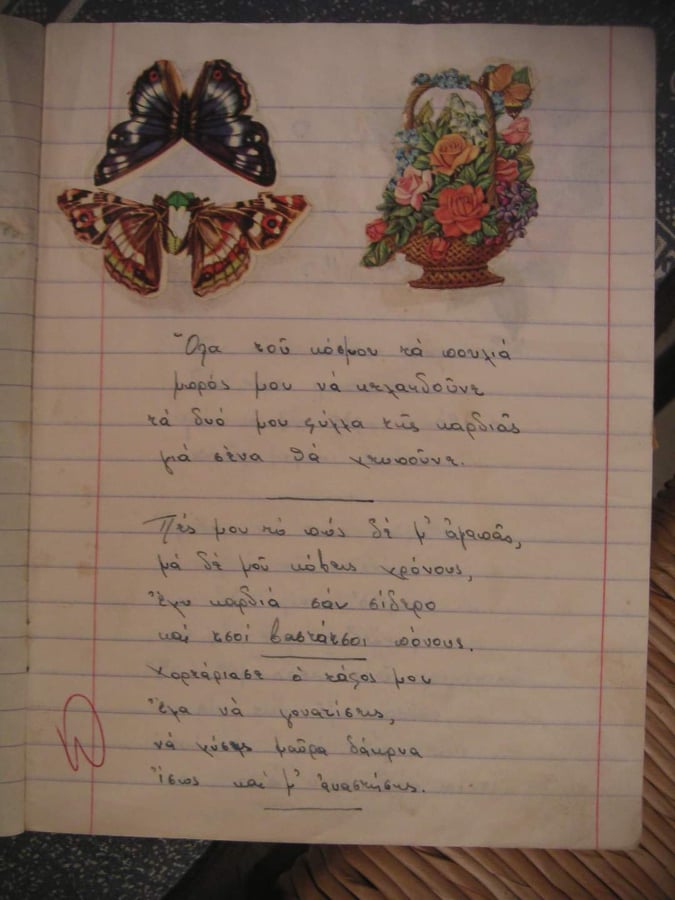 Ὅλα τοῦ κόσμου τά πουλιά
μωρός μου νά κελαηδοῦνε
τά δυό μου φύλλα τῆς καρδιᾶς
γιά σένα θά χτυποῦνε.
Πές μου το πώς δέ μ' ἀγαπᾶς,
μά δέ μοῦ κόβεις χρόνους,
ἔχω καρδιά σάν σίδερο
καί τσοί βαστάτσοι πόνους.
Χορτάριασε ὁ τάφος μου
ἔλα νά γονατίσης,
νά χύσης μαῦρα δάκρυα
ἴσως καί μ' ἀναστήσης.